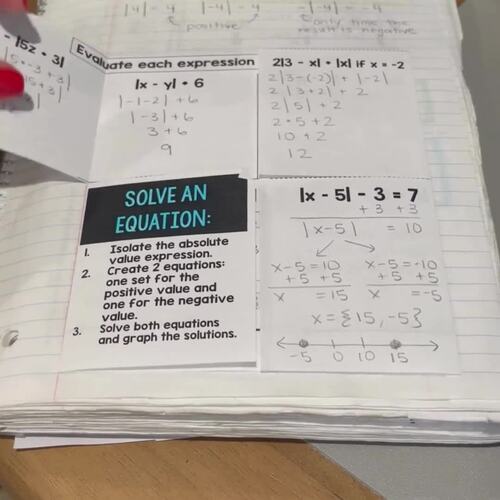 |4| = 4 |-4| = 4 -|-4| = -4
positive
only time the
result is negative
- |5z + 3|
|5 • -3 + 3|
15 + 3|
Evaluate each expression
|x - y| + 6
|-1-2| + 6
|-3| + 6
3 + 6
9
2|3 - x| + |x| if x = -2
2|3-(-2)| + |-2|
2|3+2| + 2
2|5| + 2
2 • 5 + 2
10 + 2
12
SOLVE AN
EQUATION:
1. Isolate the absolute
value expression.
2. Create 2 equations:
one set for the
positive value and
one for the negative
value.
3. Solve both equations
and graph the solutions.
|x - 5| - 3 = 7
+ 3 + 3
|x-5| = 10
x-5 = 10 x-5 = -10
+5 +5 +5 +5
x = 15 x = -5
x = {15, -5}
-5 0 10 15